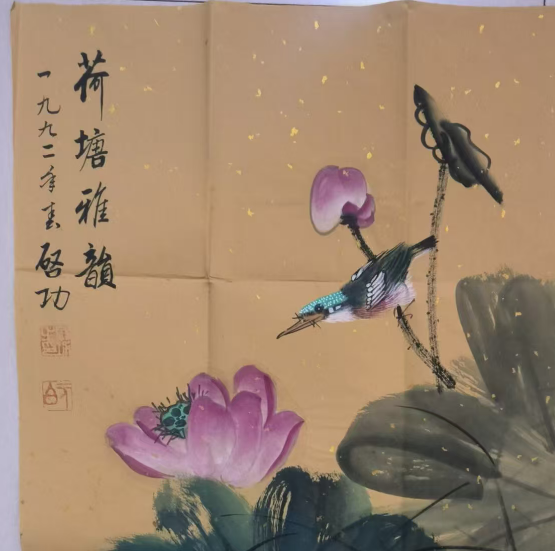 荷塘雅韻
一九九二年春 啓功